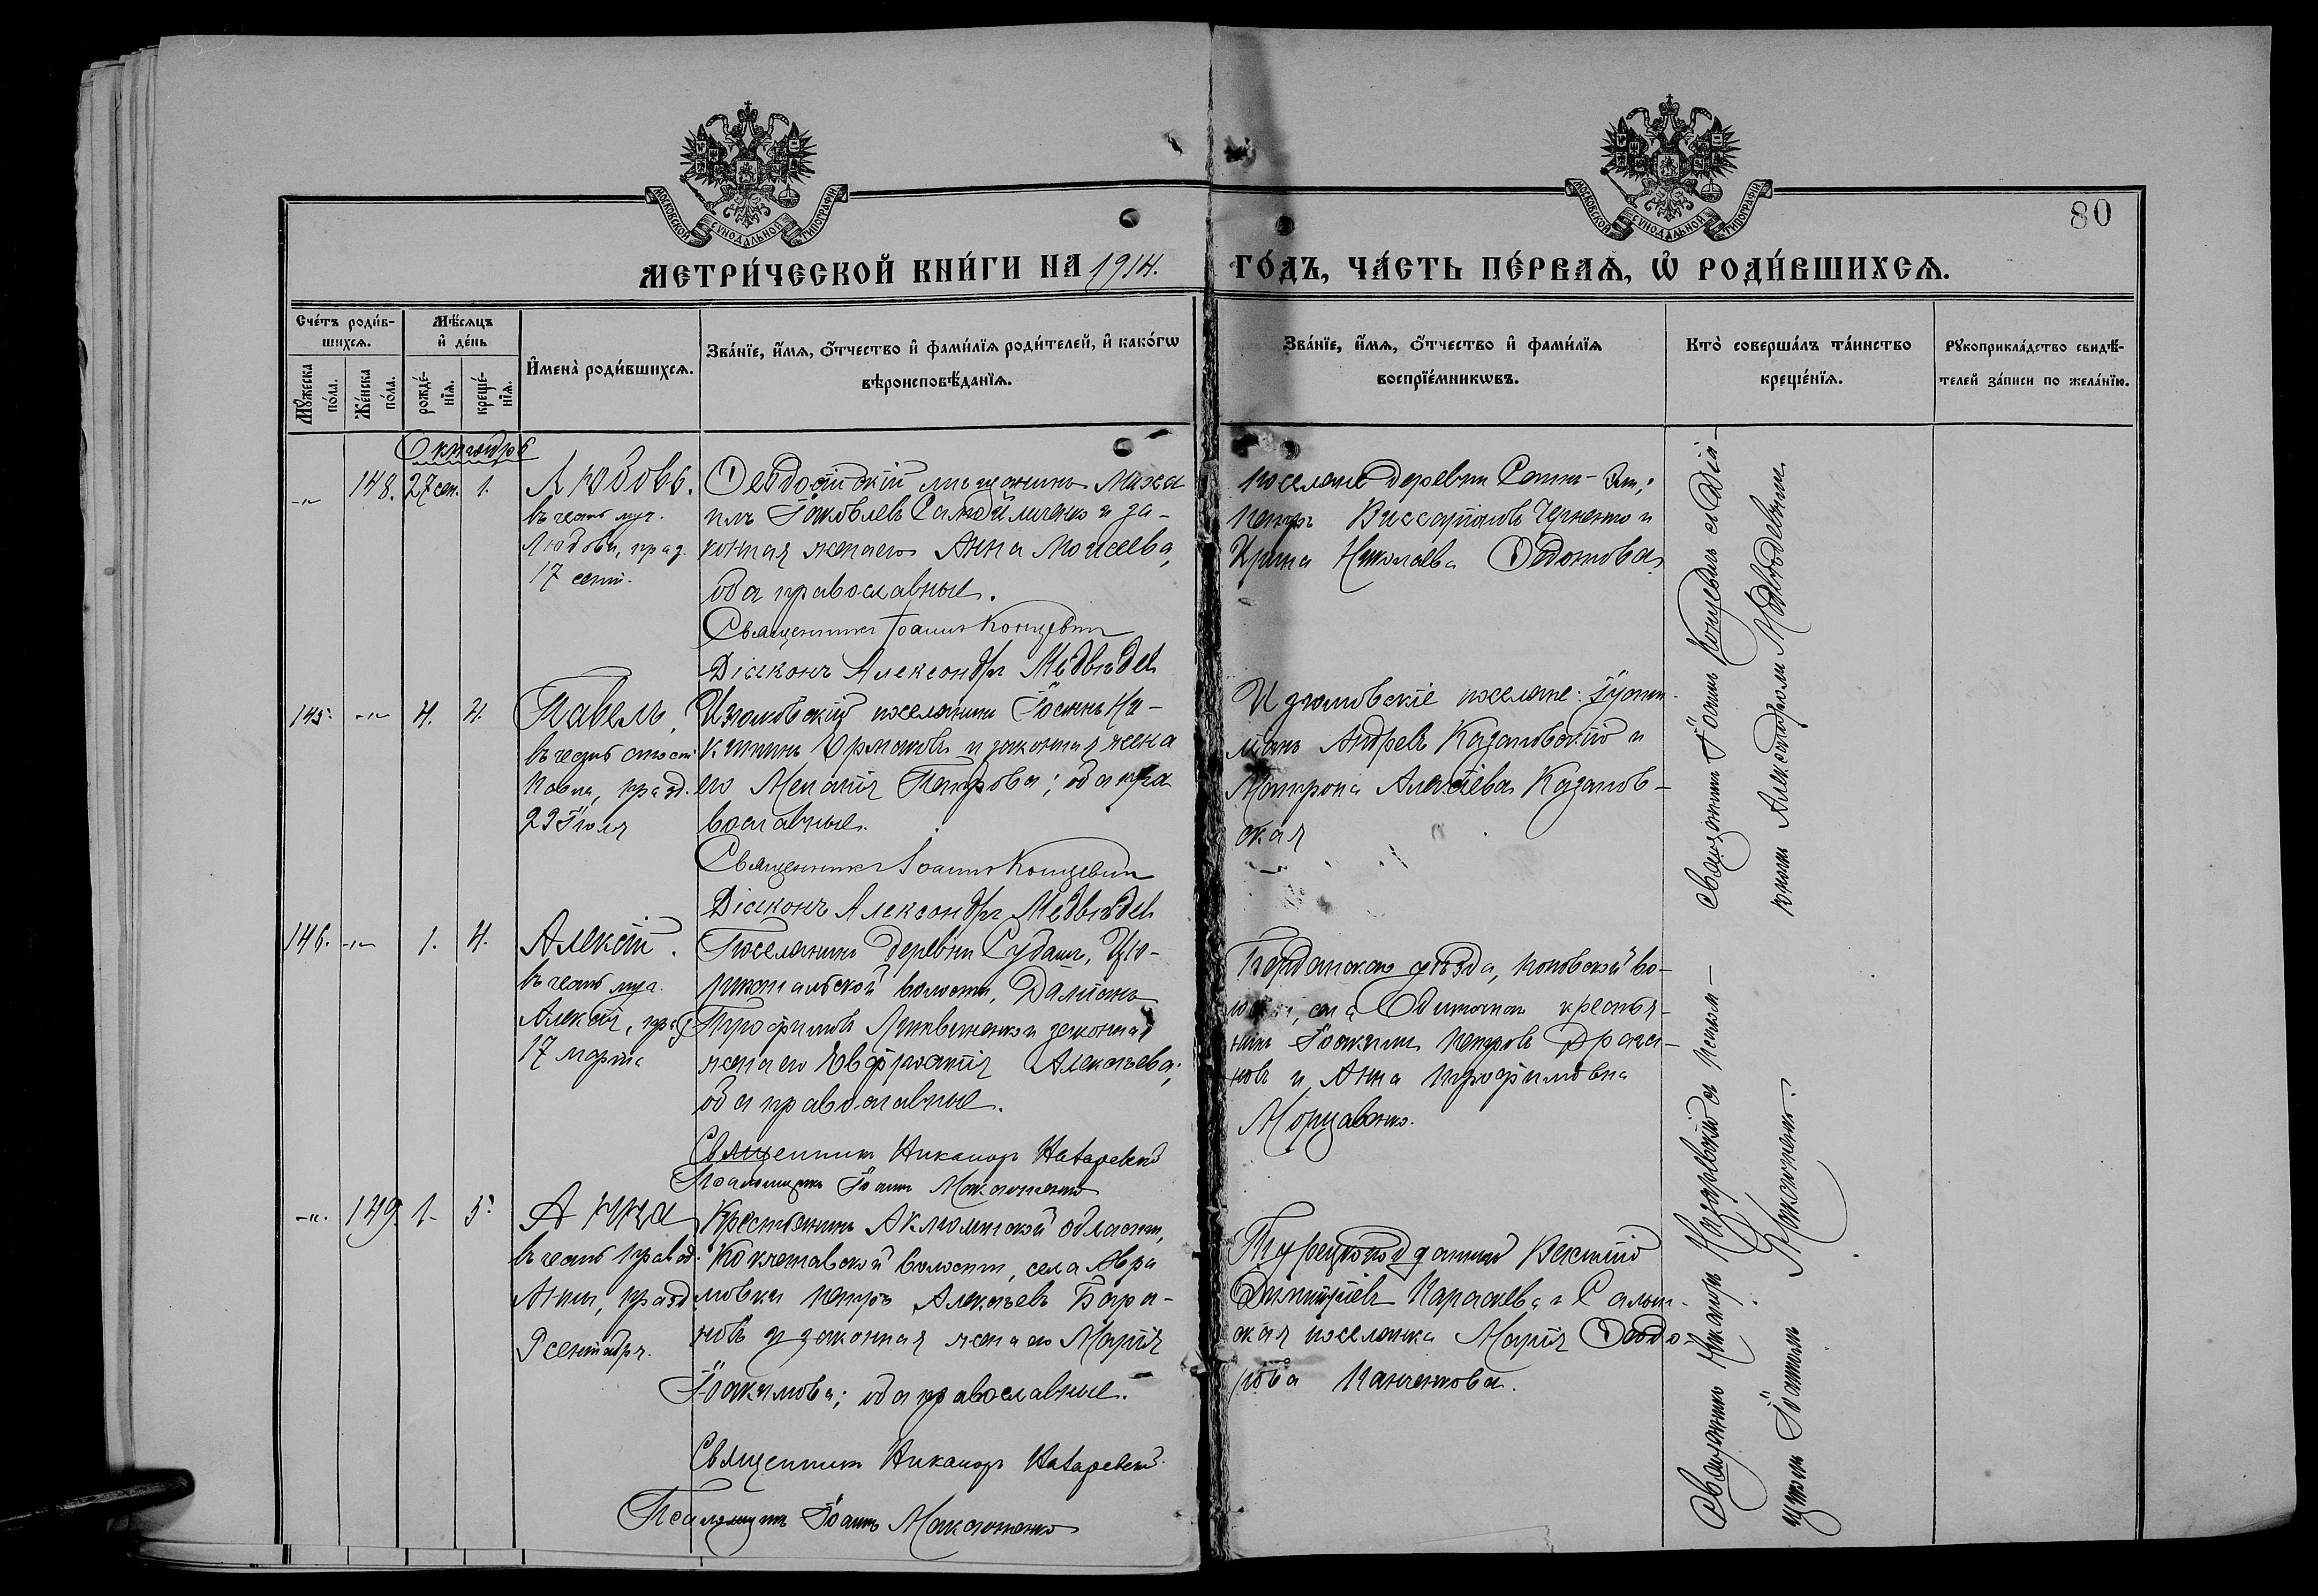 МОСКОВСКОЙ СѴНОДАЛЬНОЙ ТИПОГРАФІИ
МОСКОВСКОЙ СѴНОДАЛЬНОЙ ТИПОГРАФІИ
80
МЕТРИ́ЧЕСКОЙ КНИ́ГИ НА 1914. ГО́ДЪ, ЧА́СТЬ ПЕ́РВАѦ, Ѡ҆ РОДИ́ВШИХСѦ.
Сче́тъ роди́в-
шихсѧ.
Мꙋ́жеска по́ла.
Же́нска по́ла.
Мѣ́сѧцъ
и҆ де́нь
рожде́-
нїѧ.
креще́-
нїѧ.
И҆мена̀ роди́вшихсѧ.
Зва́нїе, и҆́мѧ, ѻ҆́тчество и҆ фами́лїѧ роди́телей, и҆ како́гѡ
вѣроисповѣ́данїѧ.
Зва́нїе, и҆́мѧ, ѻ҆́тчество и҆ фами́лїѧ
воспрїе́мникѡвъ.
Кто̀ соверша́лъ та́инство
креще́нїѧ.
Рꙋкоприкла́дство свидѣ́-
телей за́писи по жела́нїю.
Октябрь
-"- 148. 27 сен. 1. Любовь.
въ честь муч.
Любови, праз.
17 сент.
Ѳеодосійскій мѣщанинъ Миха
илъ Іаковлевъ и за-
конная жена его Анна Моисеева,
оба православные.
Священникъ Іоаннъ Концевич
Діаконъ Александръ Медвѣдев
поселяне деревни
Петръ Виссаріоновъ Черненко и
Ирина Николаева Ѳедотова
Священникъ Іоаннъ Концевичъ съ діа-
кономъ Александромъ Медвѣдевымъ.
145. -"- 4. 4. Павелъ,
въ честь апост.
Павла, празд.
29 Іюля
Изюмовскій поселянинъ Іоаннъ Ни-
китинъ Ермаковъ и законная жена
его Меланія Петрова; оба пра
вославные.
Священникъ Іоаннъ Концевич
Діаконъ Александръ Медвѣдев
Изюмовскіе поселяне:
Андреевъ Казановскій и
Матрона Алексіева Казанов-
ская
146. -"- 1. 4. Алексій.
въ честь муч.
Алексія, празд
17 марта
Поселянинъ деревни Судакъ, Цю-
рихтальской волости,
Трофимовъ Литвиненко и законная
жена его Евфросинія Алексѣева;
оба православные.
Священникъ Никаноръ Назаревскій
Псаломщикъ Іоаннъ Макаоненко
Бердянскаго уѣзда, Поповской во-
села крестья-
нинъ Іоакимъ Петровъ
новъ и Анна Трофимовна
Священникъ Никаноръ Назаревскій съ псалом-
щикомъ Іоанномъ
-"- 149. 1. 5. Анна
въ честь правед.
Анны, празд
9 сентября.
Крестьянинъ Акмолинской области,
Кокчетавской волости, села Авра
мовки Петръ Алексѣевъ Бара-
новъ и законная жена его Марія
Іоакимова; оба православные.
Священникъ Никаноръ Назаревскій
Псаломщикъ Іоаннъ Макаоненко
Турецкоподданный
Димитріевъ и
ская поселянка Марія Ѳеодо-
рова